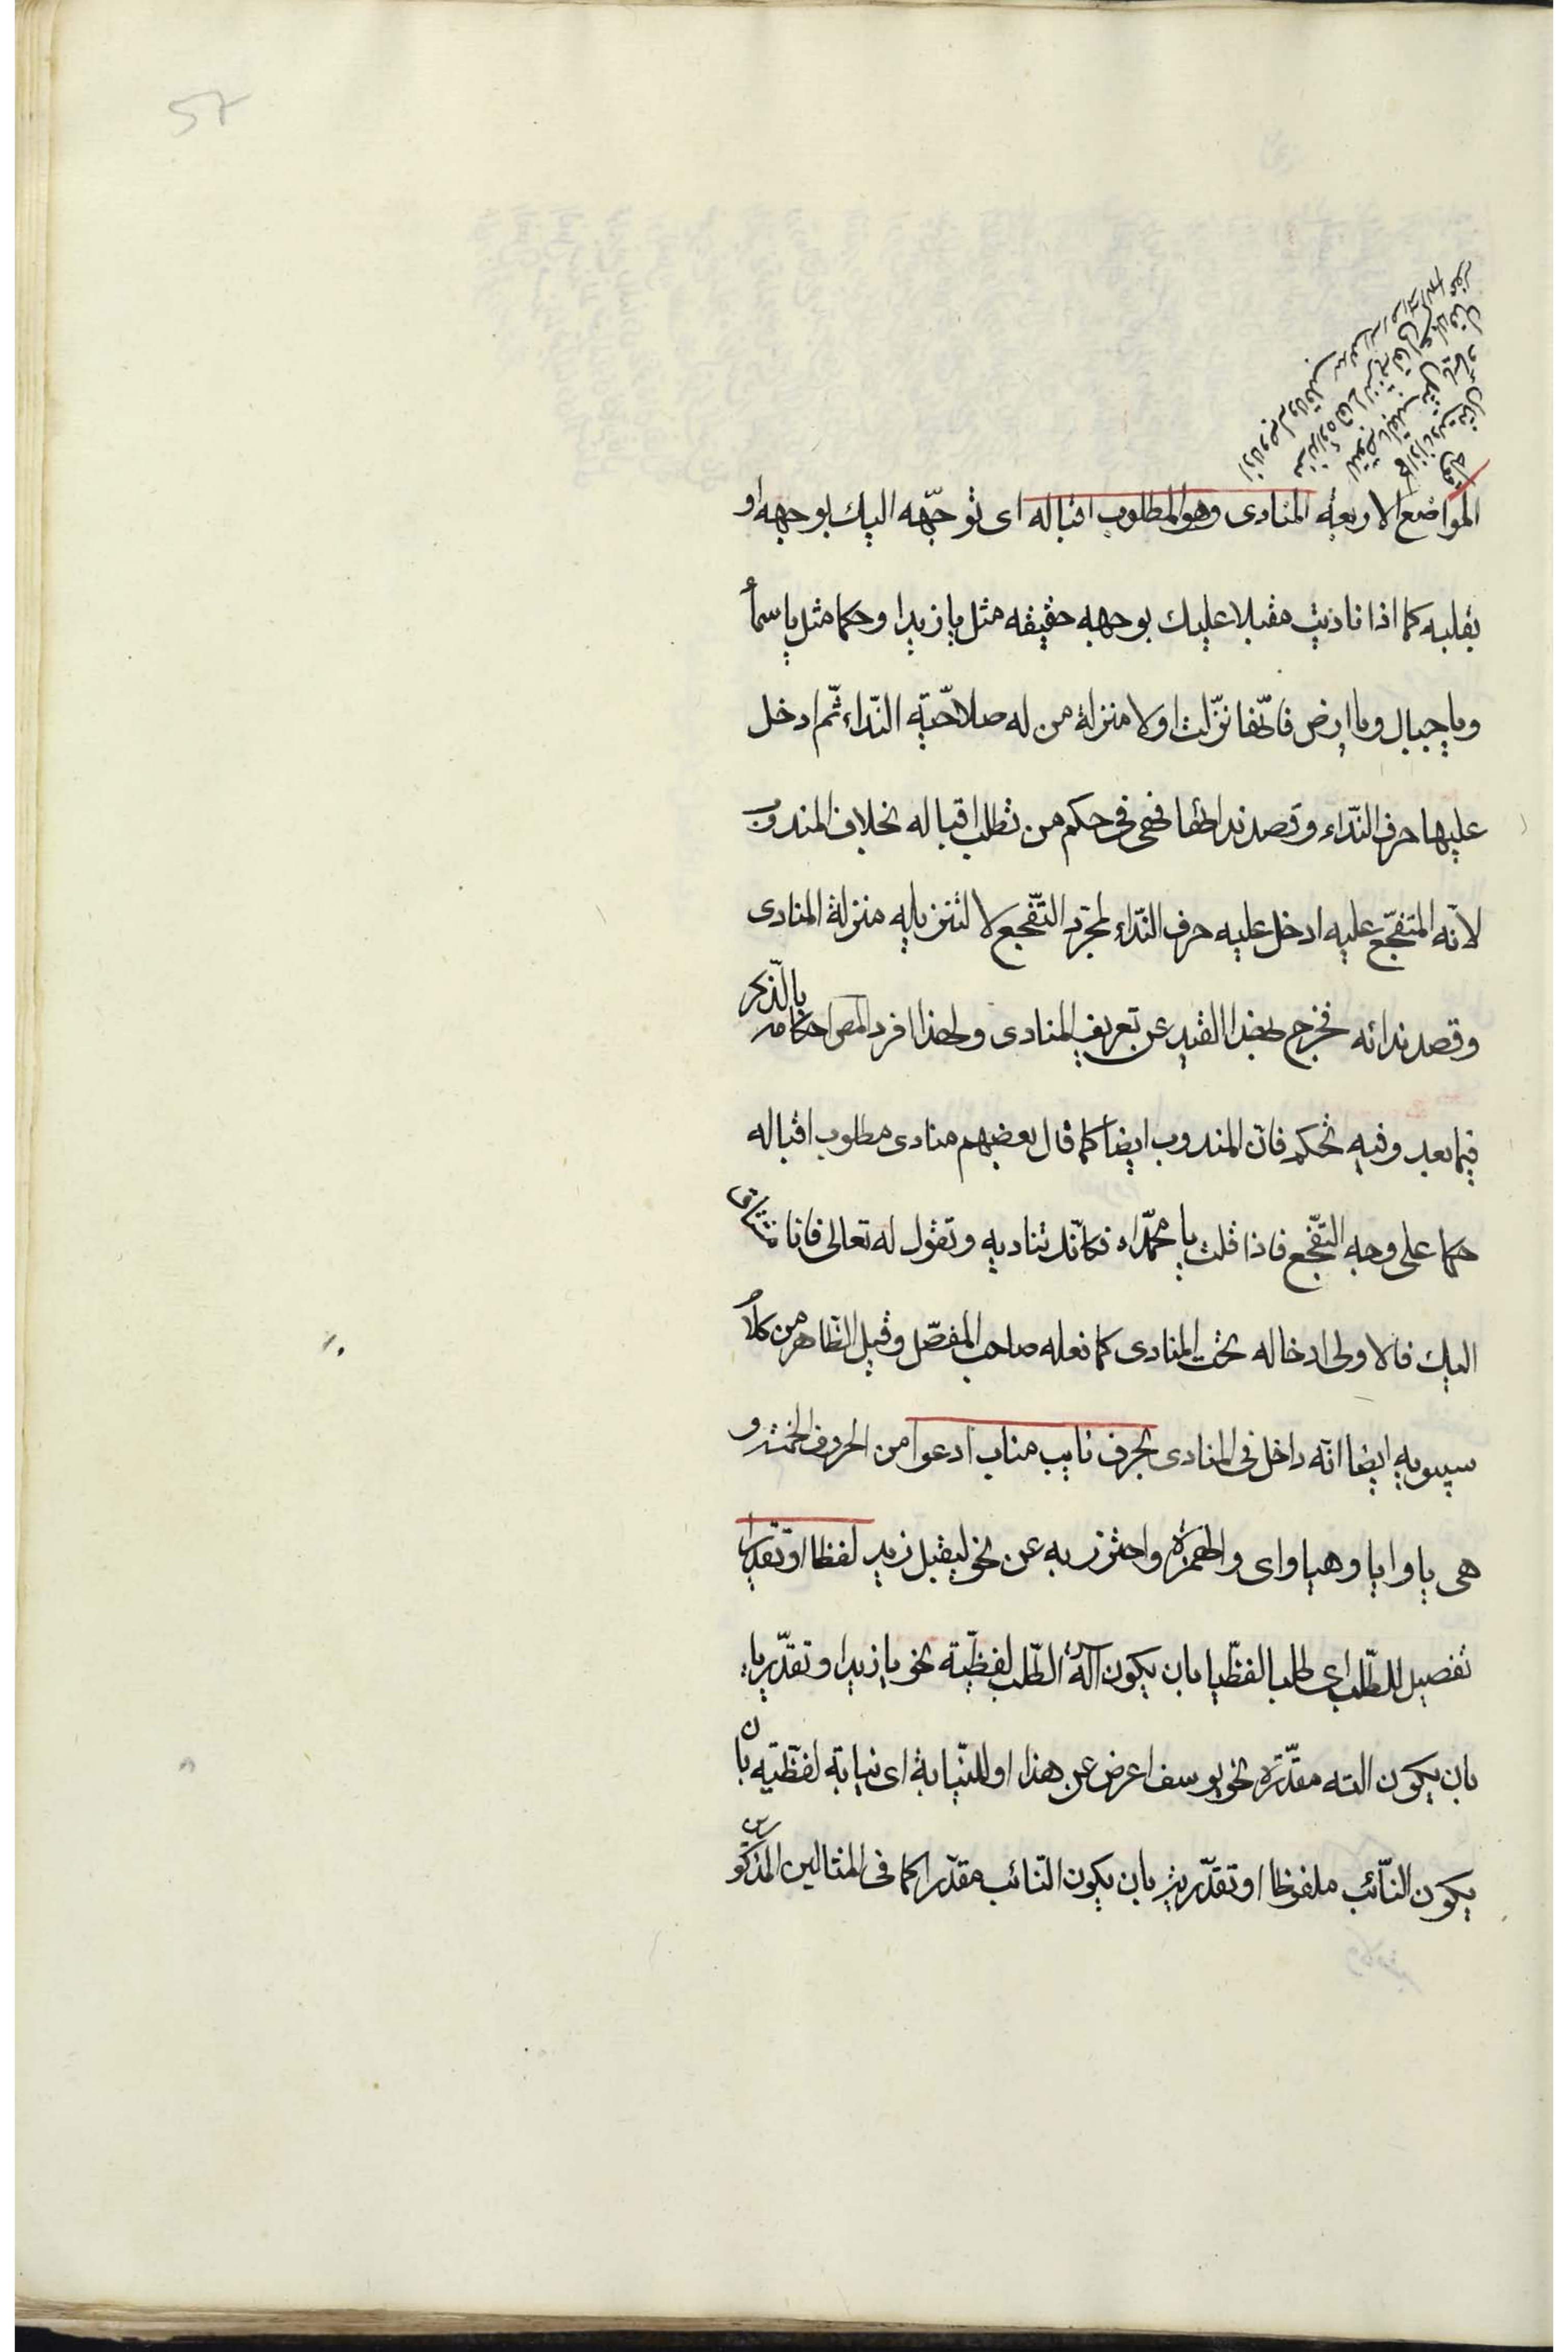 57
المواضع الاربعة المنادى وهو المطلوب اقباله اى توجّهه اليك بوجهه او
بقلبه كما اذا ناديت مقبلا عليك بوجهه حقيقه مثل يا زيدا وحكما مثل يا سمأ
ويا جبال ويا ارض فانّها نزّلت اولا منزلة من له صلاحّية النّداء ثمّ ادخل
عليها حرف النّداء وقصد نداؤها فهى فى حكم من تطلب اقباله بخلاف المندوب
لانّه المتفجّع عليه ادخل عليه حرف النّداء لمجرّد التّفجع لا لتنزيله منزلة المنادى
وقصد ندائه فخرج بهذا القيد عن تعريف المنادى ولهذا افرد المص احكامه بالّذكر
فيما بعد وفيه تحكم فانّ المندوب ايضا كما قال بعضهم منادى مطلوب اقباله
حكما على وجه التّفجّع فاذا قلت يا محمّداه فكانّك تناديه وتقول له تعالى فانا مشتاق
اليك فالاولى ادخاله تحت المنادى كما فعله صاحب المفصّل وقيل الظاهر من كلام
سيبويه ايضا انّه داخل فى المنادى بحرف نايب مناب ادعوا من الحروف الخمسة و
هى يا وايا وهيا واى والهمزة واحترز به عن نحو ليقبل زيد لفظا او تقديرا
تفصيل للطّلب اى طلبا لفظّيا بان يكون آلة الطّلب لفظّية نحو يا زيدا وتقدّيريا
بان يكون الته مقدّرة نحو يوسف اعرض عن هذا او للنّيابة اى نيابة لفظّيه بان
يكون النّائب ملفوظا او تقدّيرية بان يكون النّائب مقدّرا كما فى المثالين المذكور